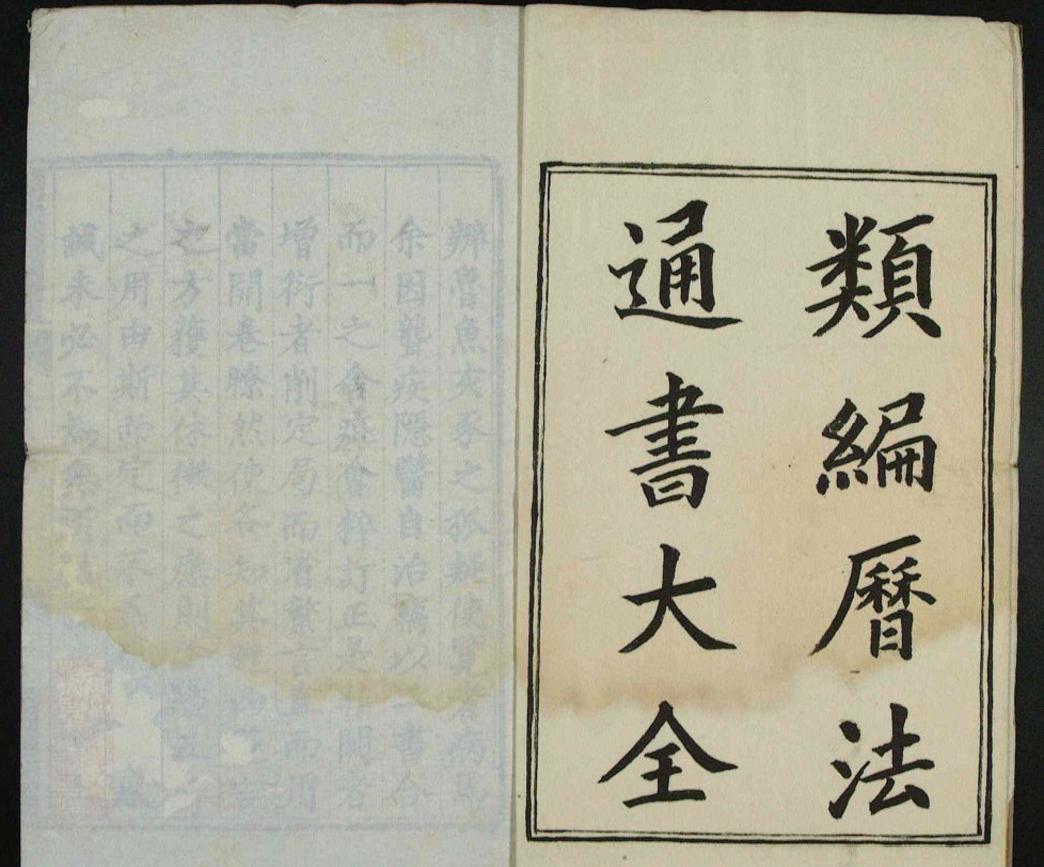 類編曆法
通書大全
辨魯魚亥豕之狐疑使覽者病焉
余因聾疾隱醫自治藥以二書合
而一之會粹訂正是非閑者
增衍者削定局而省繁言直而用
當開卷瞭然使各知其
之方獲其休徵之應則
之用由斯而定而不
来必不為無所